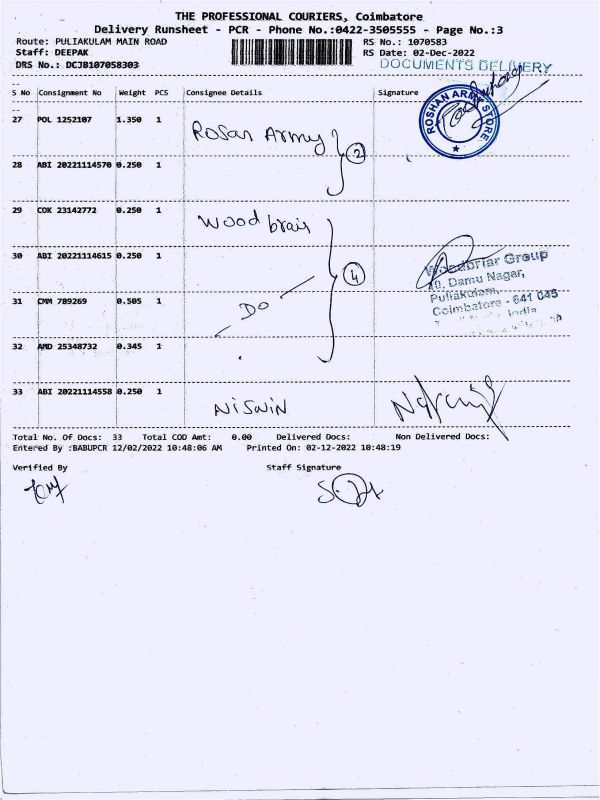 THE PROFESSIONAL COURIERS, Coimbatore
Delivery Runsheet - PCR - Phone No.:0422-3505555 - Page No.:3
Route: PULIAKULAM MAIN ROAD RS No.: 1070583
Staff: DEEPAK RS Date: 02-Dec-2022
DRS No.: DCJB107058303 DOCUMENTS DELIVERY
S No Consignment No Weight PCS Consignee Details Signature
27 POL 1252107 1.350 1 Rosan Army 2 ROSHAN ARMY STORE
28 ABI 20221114570 0.250 1
29 COK 23142772 0.250 1 Wood briar
30 ABI 20221114615 0.250 1 4 Woodbriar Group
10, Damu Nagar,
31 CMM 789269 0.505 1 DO Puliakulam,
Coimbatore - 641 045
India
32 AMD 25348732 0.345 1
33 ABI 20221114558 0.250 1 NISWIN
Total No. Of Docs: 33 Total COD Amt: 0.00 Delivered Docs: Non Delivered Docs:
Entered By :BABUPCR 12/02/2022 10:48:06 AM Printed On: 02-12-2022 10:48:19
Verified By Staff Signature